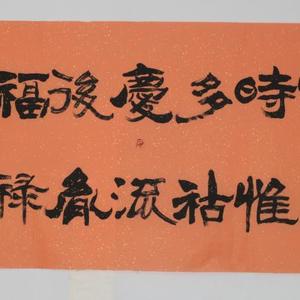 時多慶後福
惟祜胤祿